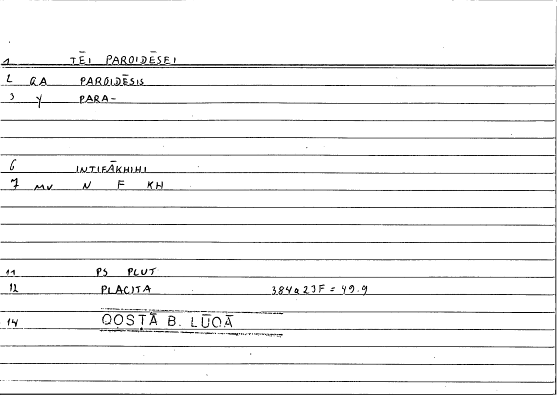 1 TĒI PAROIDĒSEI
2 GA PAROIDĒSIS
3 y PARA-
6 INTIFĀKHIHI
7 mv N F KH
11 PS PLUT
12 PLACITA 384a23F = 49.9
14 QOSṬĀ B. LŪQĀ